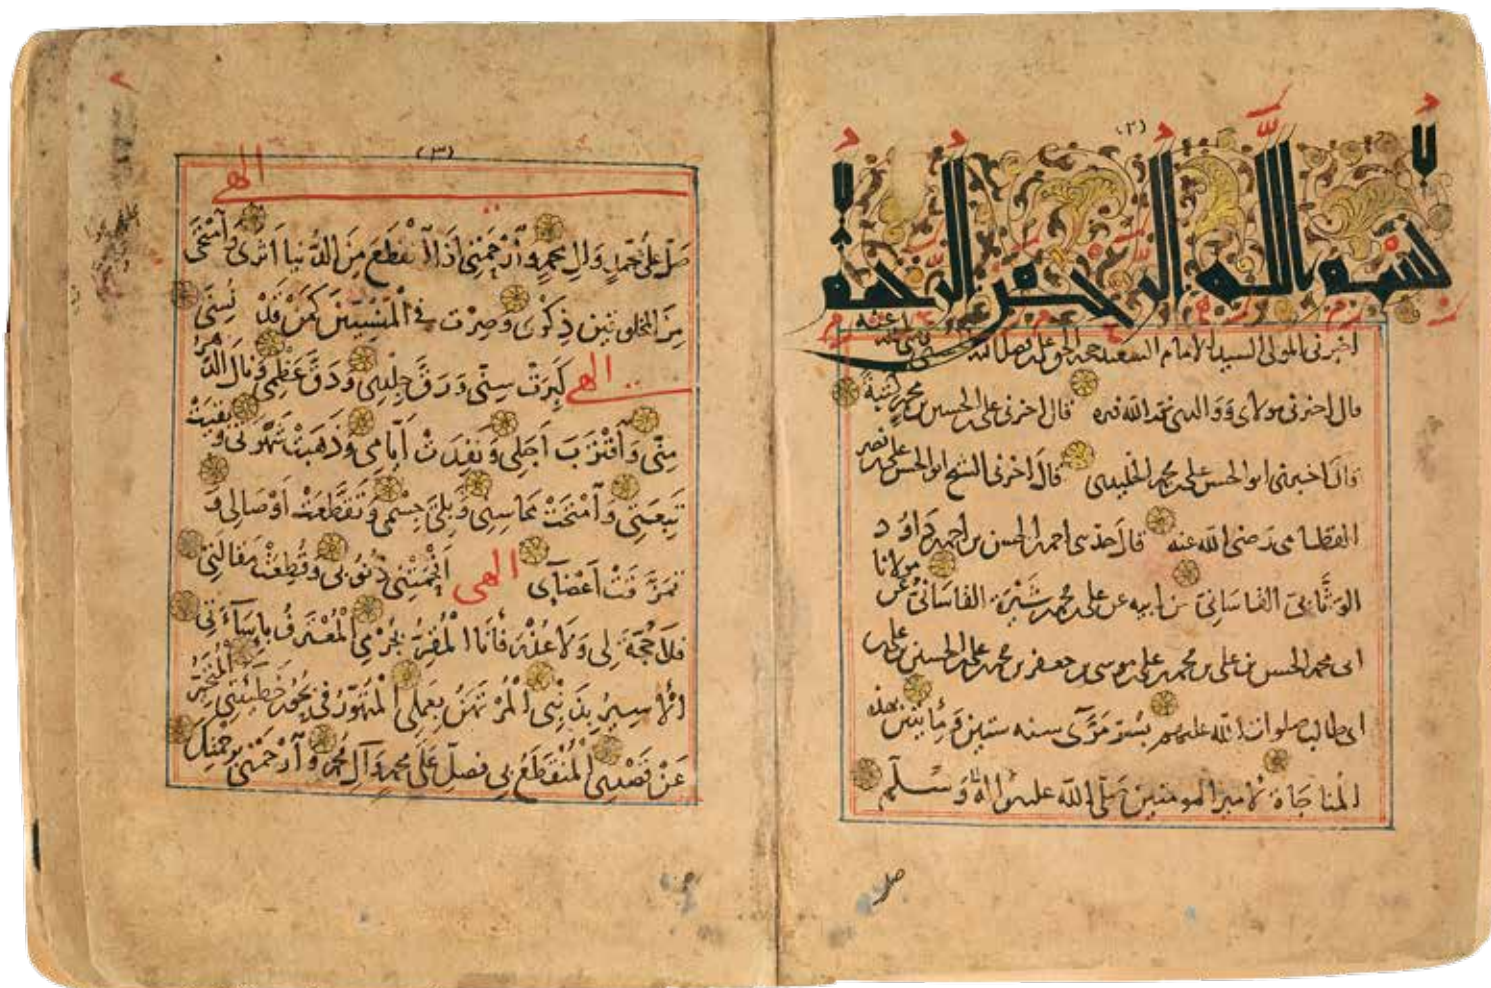 (٢)
بسم الله الرحمن الرحيم
اخبرنی المولی السید الامام السعید
قال اخبرنی مولای ووالدی قال اخبرنی علی بن الحسین بن محمد
قال اخبرنی ابو الحسن علی بن محمد الخلیدی قال اخبرنی الشیخ ابو الحسن علی بن نصر
القطامی رضی الله عنه قال حدثنی احمد بن الحسن بن احمد بن داود
الوثابی القاسانی عن ابیه عن علی بن محمد بن شیرة القاسانی عن مولانا
ابی محمد الحسن بن علی بن محمد بن علی بن موسی بن جعفر بن محمد بن علی بن الحسین بن علی بن
ابی طالب صلوات الله علیهم بسر من رآی سنه ستین ومائتین بهذه
المناجاة لامیر المومنین صلی الله علیه واله وسلم
(٣)
الهی
صل علی محمد وال محمد وارحمنی اذا انقطع من الدنیا اثری وامتحی
من المخلوقین ذکری وصرت فی المنسیین کمن قد نسی
الهی کبرت سنی ورق جلدی ودق عظمی ونال الدهر
منی واقترب اجلی ونفدت ایامی وذهبت شهوتی وبقیت
تبعتی وامتحت محاسنی وبلی جسمی وتقطعت اوصالی و
تفرقت اعضای الهی افحمتنی ذنوبی وقطعت مقالتی
فلا حجة لی ولا عذر فانا المقر بجرمی المعترف باساءتی
الاسیر بذنبی المرتهن بعملی المتهور فی بحور خطیئتی المتحیر
عن قصدی المنقطع بی فصل علی محمد وآل محمد وارحمنی برحمتک